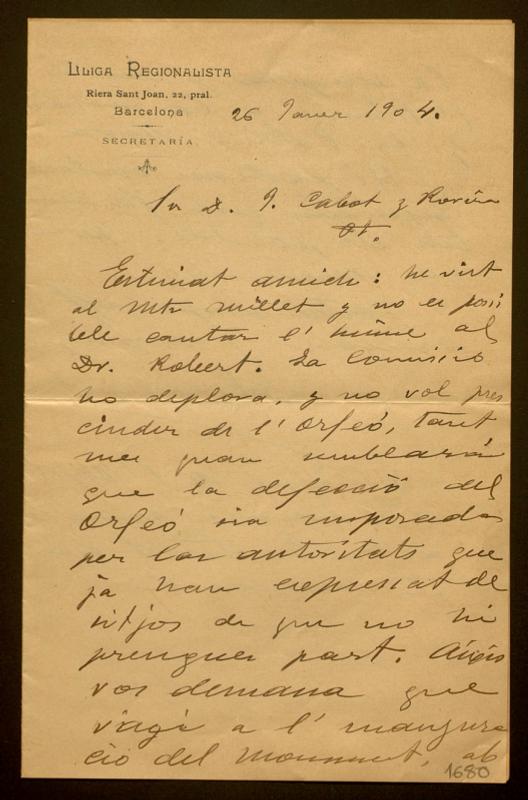 LLIGA REGIONALISTA
Riera Sant Joan, 22, pral.
Barcelona
SECRETARÍA
26 Janer 1904.
Sr D. J. Cabot y Rovira
Pt.
Estimat amich: he vist
al Mtre Millet y no es posi
ble cantar l' himne al
Dr. Robert. La Comisió
ho deplora, y no vol pres
cindir de l' Orfeó, tant
mes quan semblaría
que la defecció del
Orfeó sia imposada
per las autoritats que
ja han expresat de
sitjos de que no hi
prengues part. Aixis
vos demana que
vagi a l' inaugura
ció del monument, ab
1680